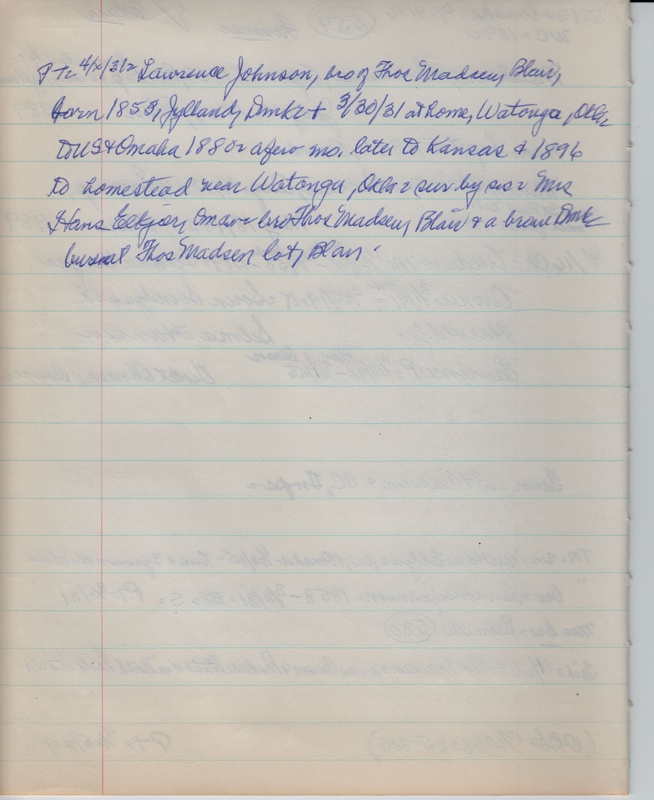 PT= 4/2/31= Lawrence Johnson, bro of Thos Madsen, Blair,
born 1853, Jylland, Dmk= + 3/30/31 at home, Watonga, Okla=
to US & Omaha 1880= a few mo. later to Kansas & 1896
to homestead near Watonga, Okla= sur by sis= Mrs
Hans Elkjor, Oma= bro Thos Madsen, Blair & a bro in Dmk=
burial Thos Madsen lot, Blair.